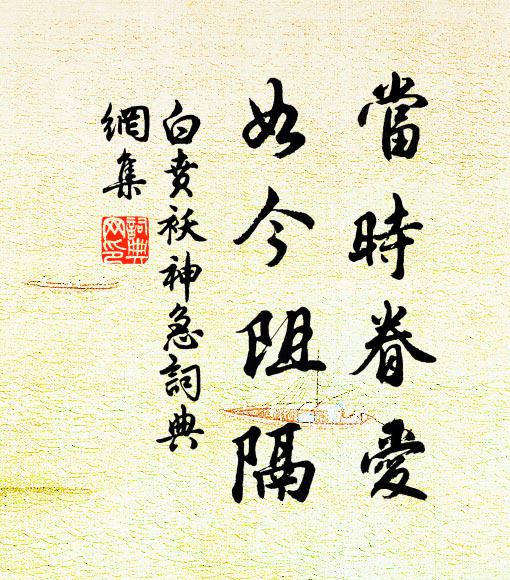 當時眷愛
如今阻隔
白賁袄神急詞典
網集
詞典
网印